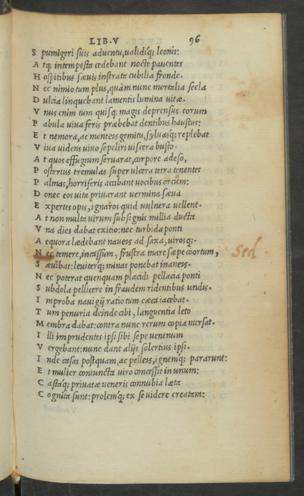 LIB. V 96
S pumigeri suis aduentu, ualidiq; leonis:
A tq; intempesta cedebant nocte pauentes
H ospitibus sæuis instrata cubilia fronde.
N ec nimio tum plus, quàm nunc mortalia secla
D ulcia linquebant lamentis lumina uitæ.
V nus enim tum quisq; magis deprensus eorum
P abula uiua feris præbebat dentibus haustus:
E t nemora, ac montess gemitu, syluasq; replebat
V iua uidens uiuo sepeliri uiscera busto.
A t quos effugium seruarat, corpore adeso,
P osterius tremulas super ulcera tetra tenentes
P almas, horriferis accibant uocibus orcum:
D onec eos uita priuarant uermina sæua
E xpertes opis, ignaros quid uulnera uellent.
A t non multa uirum sub signis millia ducta
V na dies dabat exitio: nec turbida ponti
A equora lædebant naueis ad saxa, uirosq;:
N ec temere, incassum, frustra mare sæpe coortum, Sed
S æuibat: leuiterq; minas ponebat inaneis.
N ec poterat quenquam placidi pellacia ponti
S ubdola pellicere in fraudem ridentibus undis.
I mproba nauigij ratio tum cæca iacebat.
T um penuria deinde cibi, languentia leto
M embra dabat: contra nunc rerum copia mersat.
I lli imprudentes ipsi sibi sæpe uenenum
V ergebant: nunc dant alijs solertius ipsi.
I nde casas postquam, ac pelleis, ignemq; pararunt:
E t mulier coniuncta uiro concessit in unum:
C astaq; priuatæ ueneris connubia læta
C ognita sunt: prolemq; ex se uidere creatam: